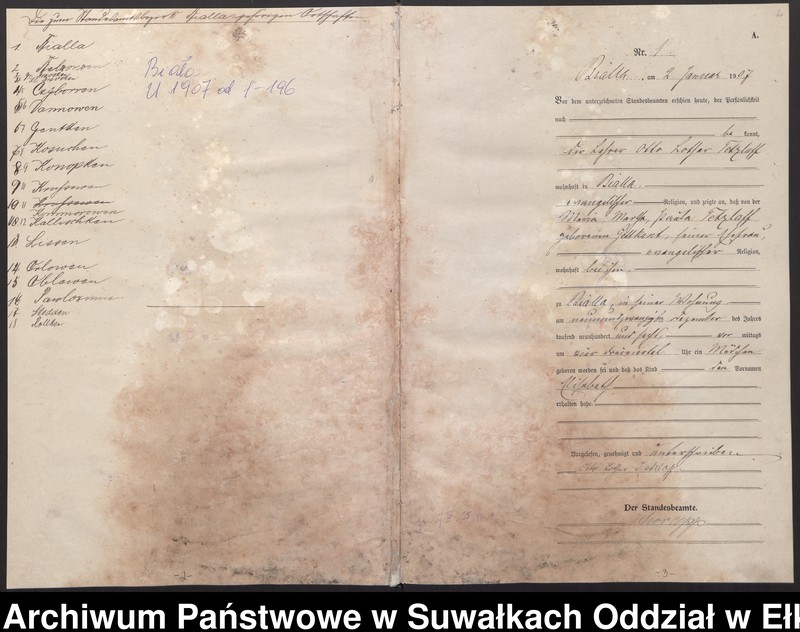 Die zum Standesamtsbezirk Bialla gehörigen Ortschaften
1 Bialla
Czyborren
Dannowen
Gentken
Kosuchen
Konopken
Krusewen
Kommorowen
Kallischken
Lissen
14 Orlowen
15 Oblewen
16
17
18
Biała
U 1907 od 1-196
A.
Nr. 1
Bialla, am 2 Januar 1907
Vor dem unterzeichneten Standesbeamten erschien heute, der Persönlichkeit
nach
be kannt,
der Lehrer Otto Lothar Tetzlaff
wohnhaft in Bialla
evangelischer Religion, und zeigte an, daß von der
Maria Martha Paula Tetzlaff
geborenen seiner Ehefrau,
evangelischer Religion,
wohnhaft bei ihm,
zu Bialla, in seiner Wohnung
am neunundzwanzigsten Dezember des Jahres
tausend neunhundert und sechs, vor mittags
um vier dreiviertel Uhr ein Mädchen
geboren worden sei und daß das Kind den Vornamen
Elisabeth
erhalten habe.
Vorgelesen, genehmigt und unterschrieben
Otto Lothar Tetzlaff
Der Standesbeamte.
-2-
-3-
Archiwum Państwowe w Suwałkach Oddział w Ełk